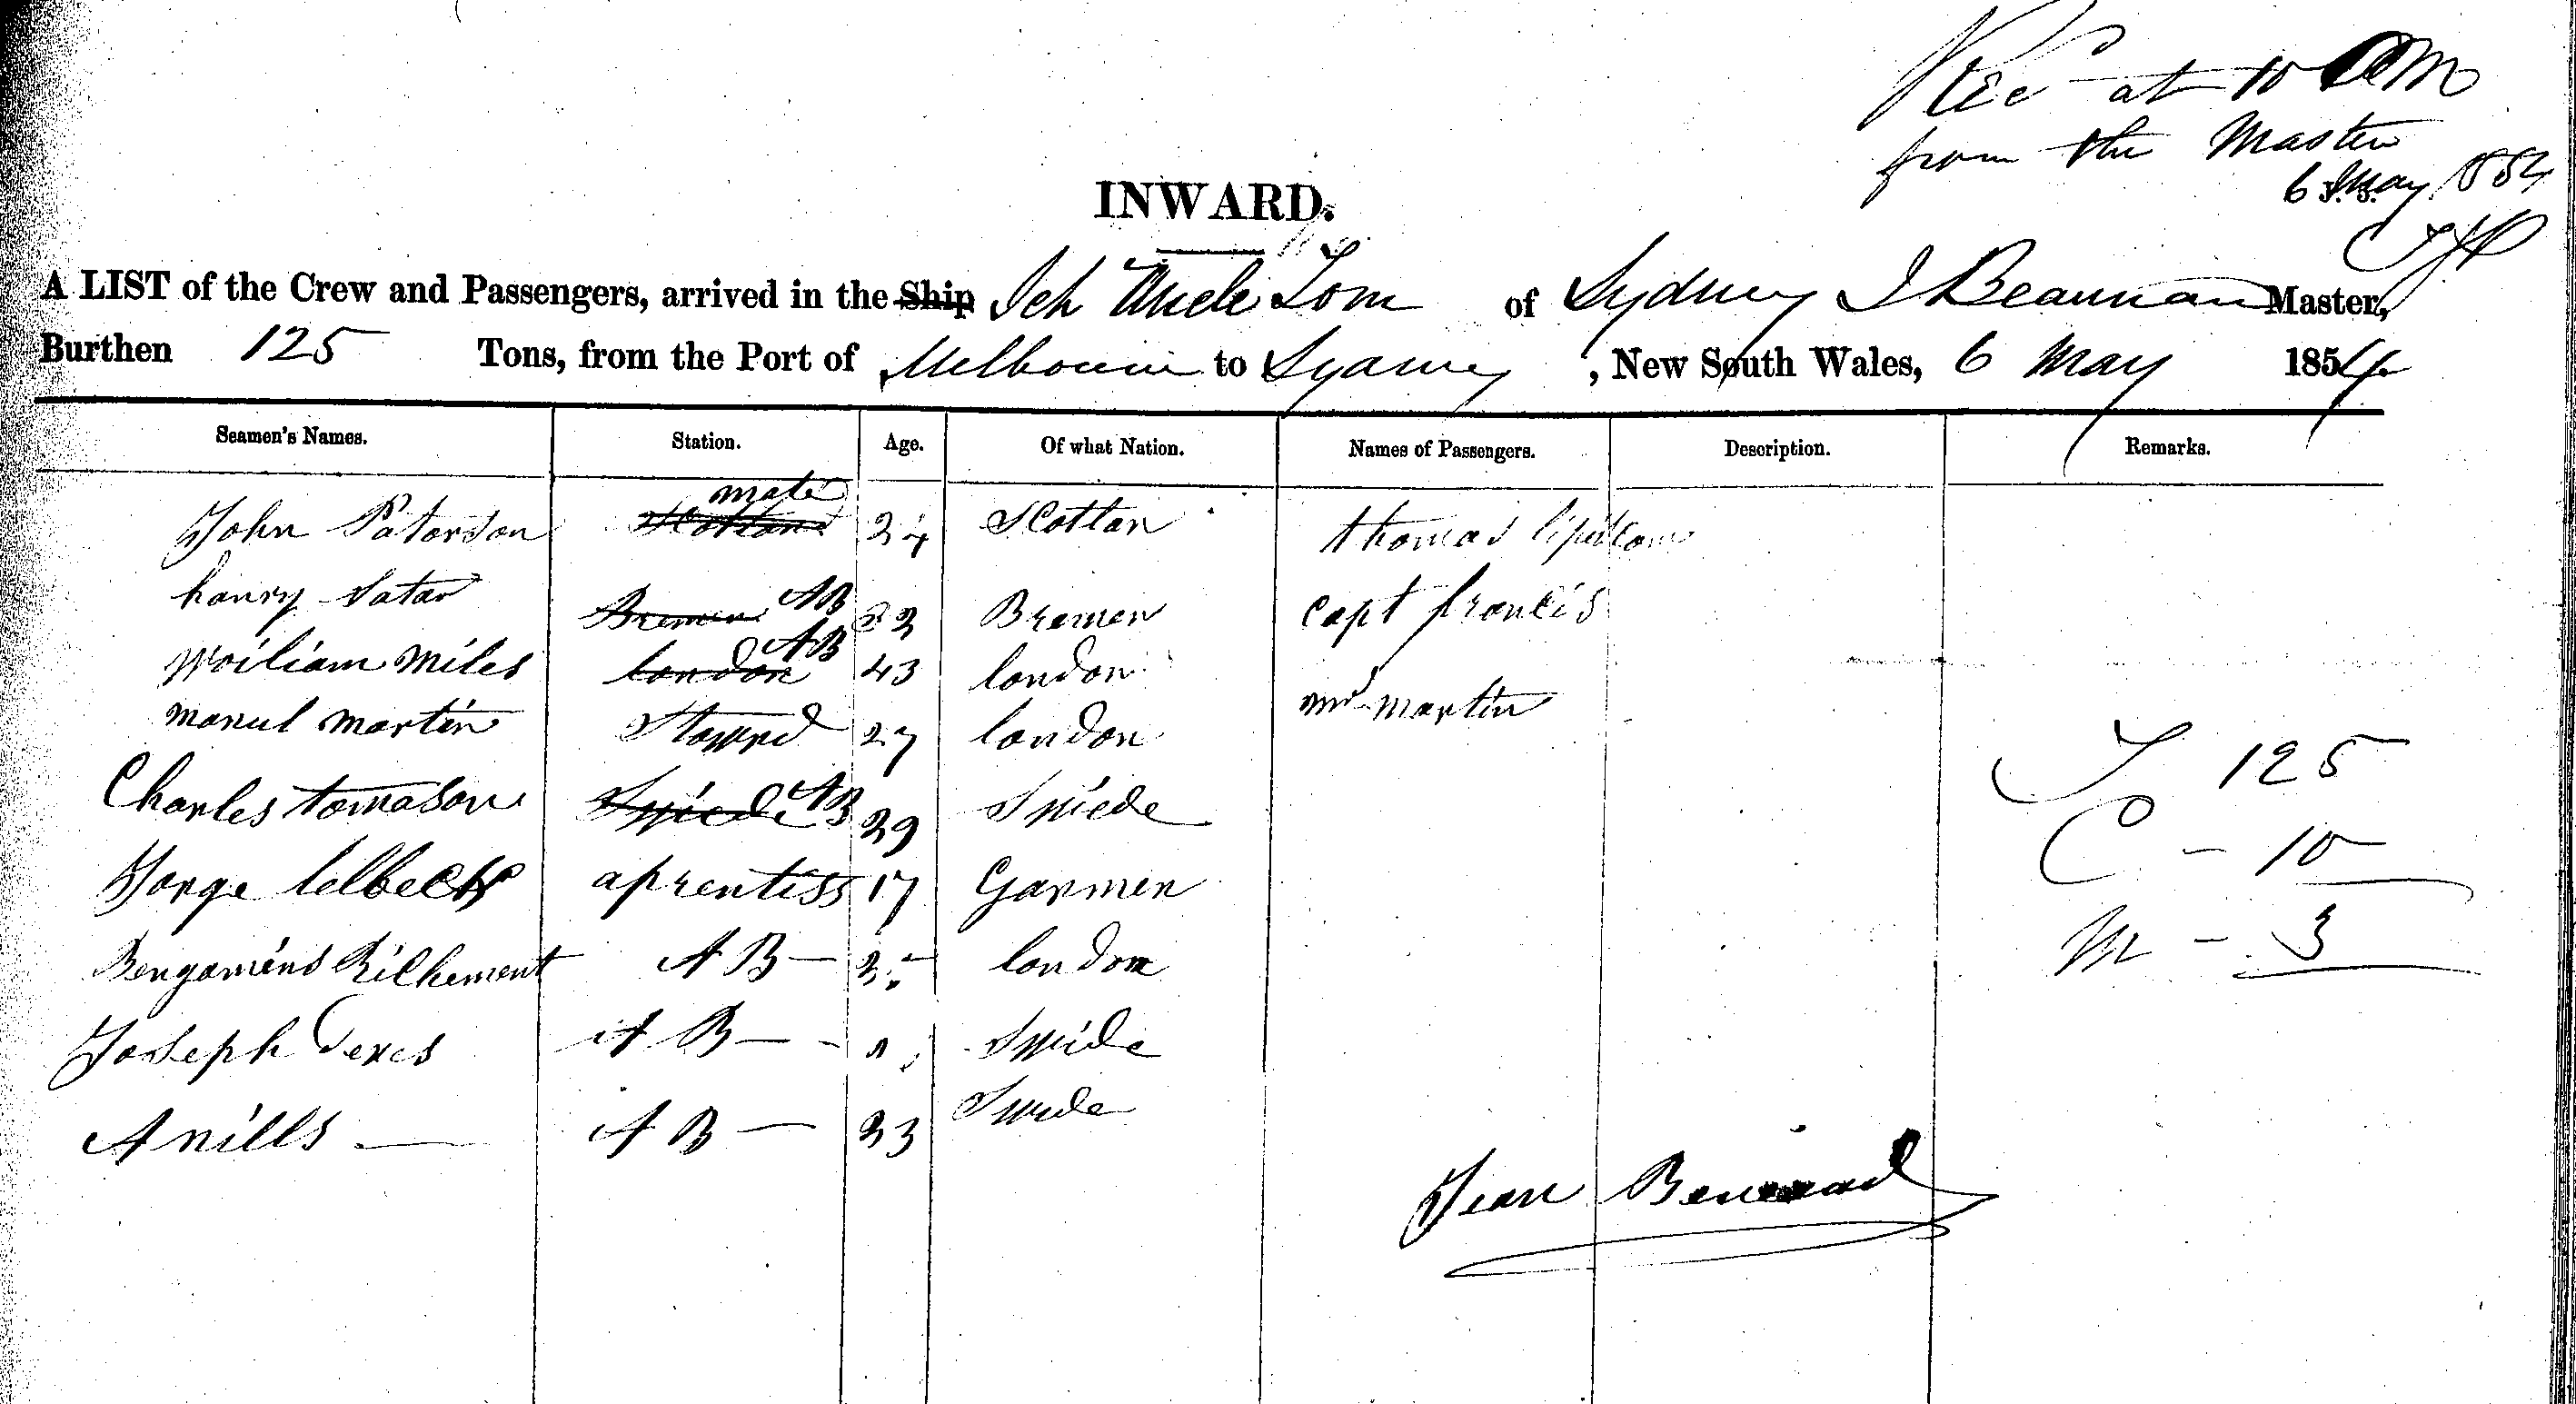 Rec at 10 AM
from the Master
6 May 1854
INWARD.
A LIST of the Crew and Passengers, arrived in the Ship Sch Uncle Tom of Sydney J Beaunan Master,
Burthen 125 Tons, from the Port of Melbourne to Sydney, New South Wales, 6 May 1854
Seamen's Names. Station. Age. Of what Nation. Names of Passengers. Description. Remarks.
John Paterson Scotland mate 24 Scotlan thomas lipscom
hanry Satar Bremen AB 22 Bremen capt francis
William Miles london AB 43 london
manul martin Steward 27 london mr martin
Charles tomason Swiede AB 29 Swiede T 125
Jorge aprentiss 17 Garmen C - 10
Bengamins Richement AB - london M - 3
Joseph AB - Swide
A nills AB - 23 Swide
Jean